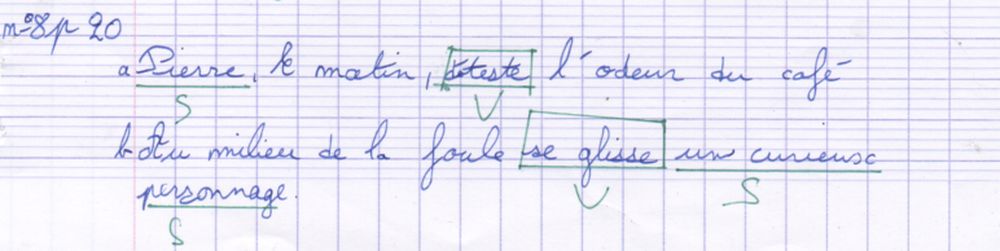 n°8 p 20
a Pierre, le matin, déteste l'odeur du café
S V
b Au milieu de la foule se glisse un curieux
V S
personnage.
S